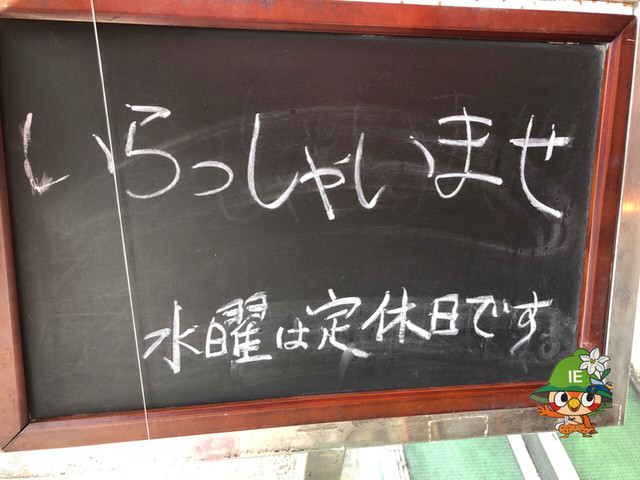 いらっしゃいませ
水曜は定休日です
IE